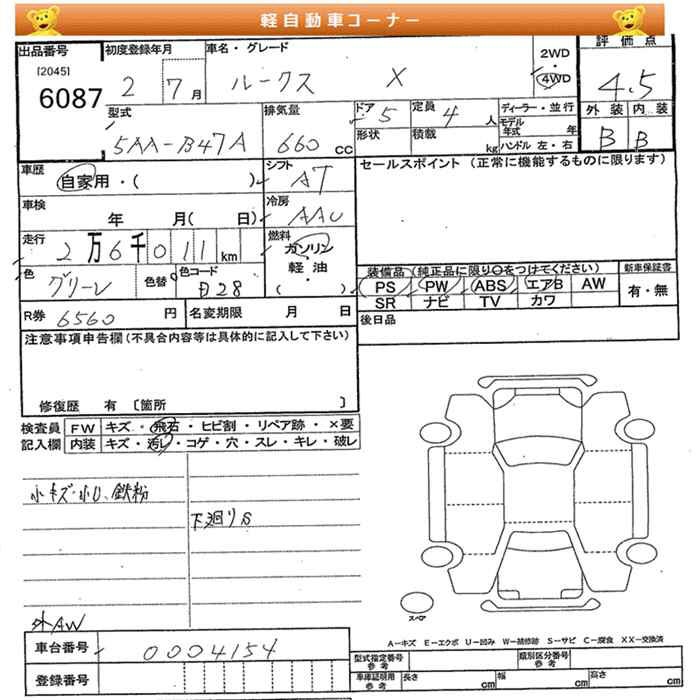 軽自動車コーナー
出品番号 初度登録年月 車名・グレード 2WD 評価点
[2045] 6087 2 7月 ルークス X 4WD 4.5
型式 排気量 ドア 5 定員 4人 ディーラー・並行 外装 内装
5AA-B47A 660cc 形状 積載 kg モデル年式 年 B B
ハンドル 左・右
車歴 自家用・( ) シフト AT セールスポイント (正常に機能するものに限ります)
車検 年 月( 日) 冷房 AAC
走行 2万6千011km 燃料 ガソリン
軽・油
( )
色 グリーン 色替 色コード 装備品 (純正品に限り○をつけてください) 新車保証書
PS PW ABS エアB AW 有・無
SR ナビ TV カワ
R券 6560円 名変期限 月 日 後日品
注意事項申告欄(不具合内容等は具体的に記入して下さい)
修復歴 有 [箇所 ]
検査員 FW キズ・飛石・ヒビ割・リペア跡・×要
記入欄 内装 キズ・汚レ・コゲ・穴・スレ・キレ・破レ
小キズ・小U、鉄粉
下廻りS
外AW
スペア
A-キズ E-エクボ U-凹み W-補修跡 S-サビ C-腐食 XX-交換済
車台番号 0004154 型式指定番号 参考 類別区分番号 参考
登録番号 車庫証明用 参考 長さ cm 幅 cm 高さ cm